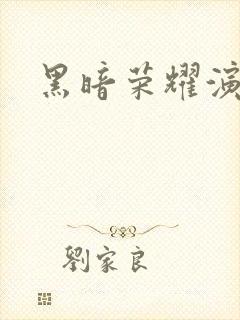 黑暗荣耀演
劉家良